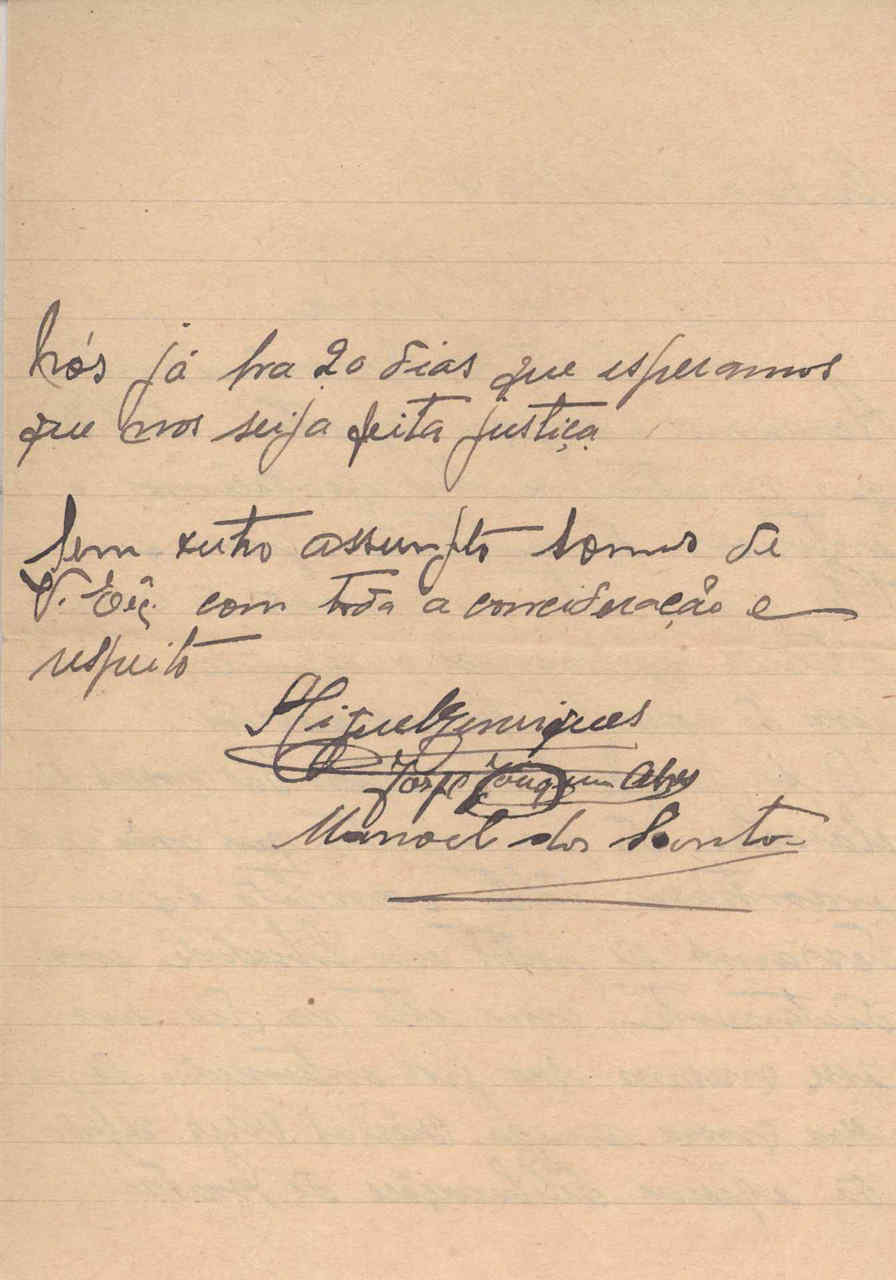 Nós já hra 20 dias que esperamos
que nos seija feita justiça
Sem outro assumpto somos de
V. Exç. com toda a concideração e
respeito
Miguel Henriques
Jorge Joaquim Alves
Manoel dos Santos